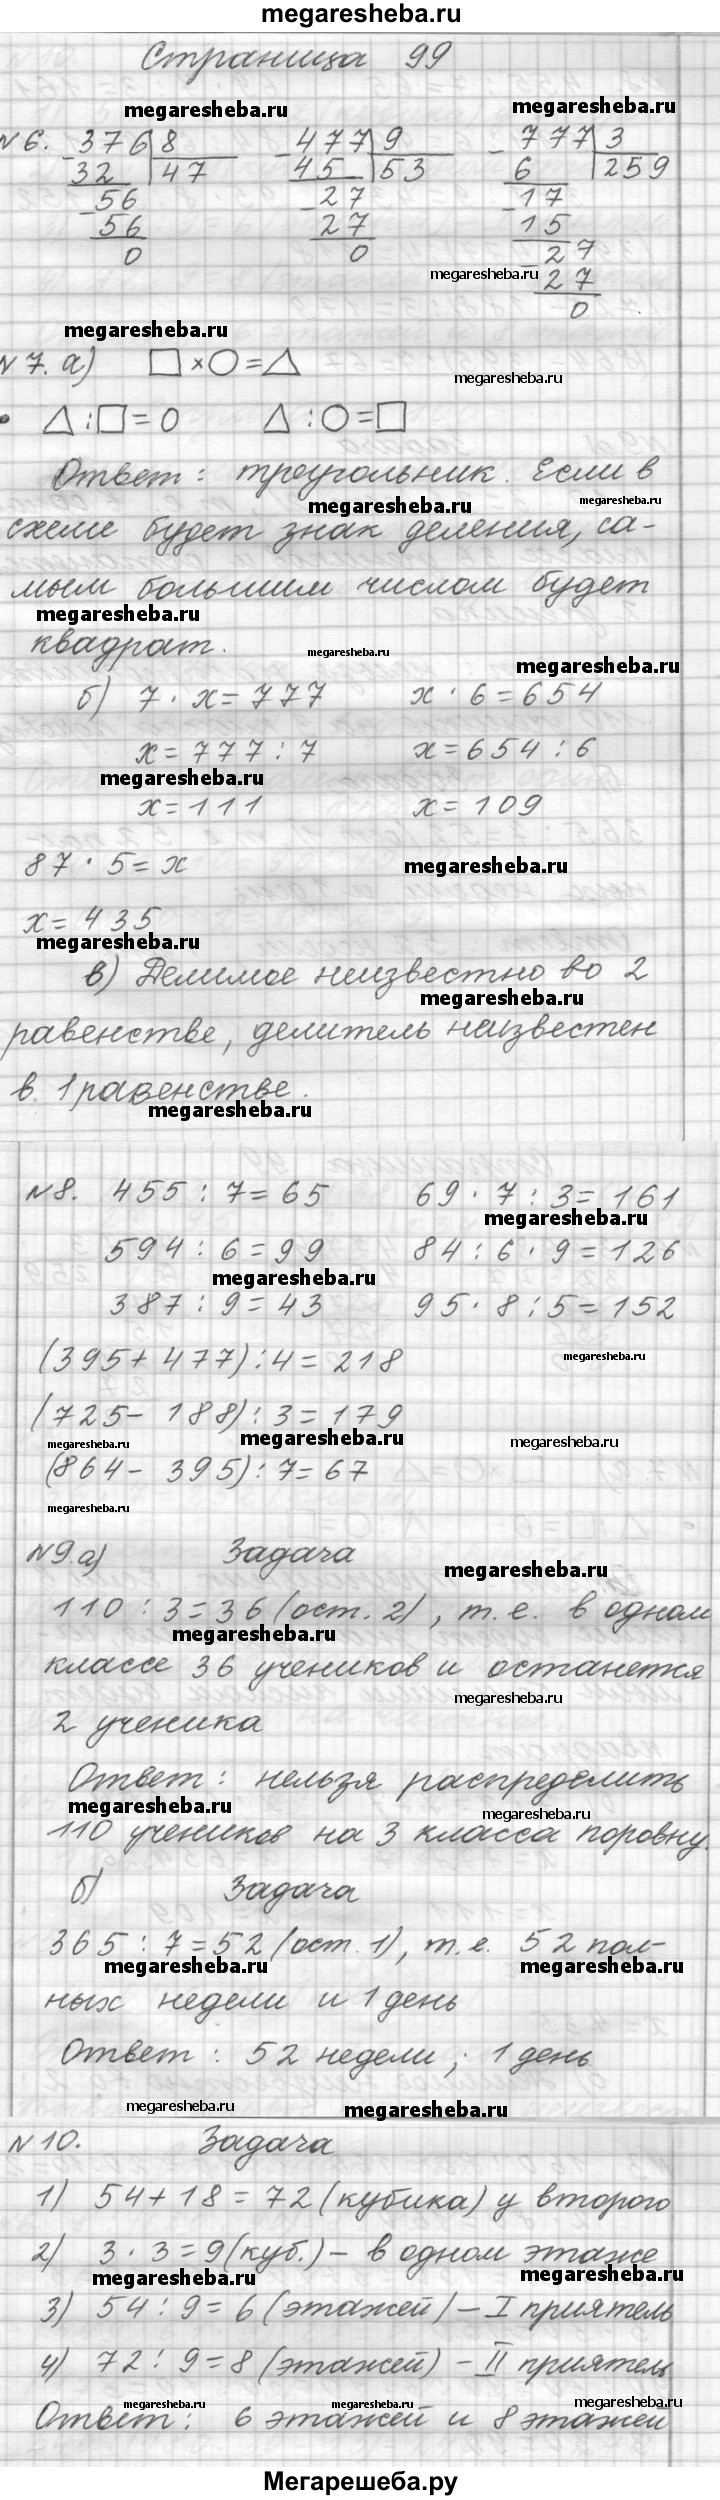 megaresheba.ru
Страница 99
megaresheba.ru megaresheba.ru
№6. 376 | 8 477 | 9 777 | 3
32 | 47 45 | 53 6 | 259
56 27 17
56 27 15
0 0 27
megaresheba.ru 27
0
megaresheba.ru
№7. а) □ × ○ = △
megaresheba.ru
• △ : □ = ○ △ : ○ = □
Ответ: треугольник. Если в
megaresheba.ru megaresheba.ru
схеме будет знак деления, са-
мым большим числом будет
megaresheba.ru
квадрат.
megaresheba.ru megaresheba.ru
б) 7 · х = 777 х · 6 = 654
х = 777 : 7 х = 654 : 6
megaresheba.ru
х = 111 х = 109
87 · 5 = х
megaresheba.ru
х = 435
megaresheba.ru
в) Делимое неизвестно во 2
megaresheba.ru
равенстве, делитель неизвестен
в 1 равенстве.
megaresheba.ru
№8. 455 : 7 = 65 69 · 7 : 3 = 161
megaresheba.ru
594 : 6 = 99 84 : 6 · 9 = 126
megaresheba.ru
387 : 9 = 43 95 · 8 : 5 = 152
(395 + 477) : 4 = 218
megaresheba.ru
(725 - 188) : 3 = 179
megaresheba.ru megaresheba.ru megaresheba.ru
(864 - 395) : 7 = 67
megaresheba.ru
№9. а) Задача
megaresheba.ru
110 : 3 = 36 (ост. 2), т. е. в одном
megaresheba.ru
классе 36 учеников и останется
megaresheba.ru
2 ученика
Ответ: нельзя распределить
megaresheba.ru megaresheba.ru
110 учеников на 3 класса поровну.
б) Задача
365 : 7 = 52 (ост. 1), т. е. 52 пол-
megaresheba.ru megaresheba.ru
ных недели и 1 день
Ответ: 52 недели; 1 день
megaresheba.ru megaresheba.ru
№10. Задача
1) 54 + 18 = 72 (кубика) у второго
2) 3 · 3 = 9 (куб.) - в одном этаже
megaresheba.ru megaresheba.ru
3) 54 : 9 = 6 (этажей) - I приятель
4) 72 : 9 = 8 (этажей) - II приятель
megaresheba.ru megaresheba.ru megaresheba.ru
Ответ: 6 этажей и 8 этажей
Мегарешеба.ру